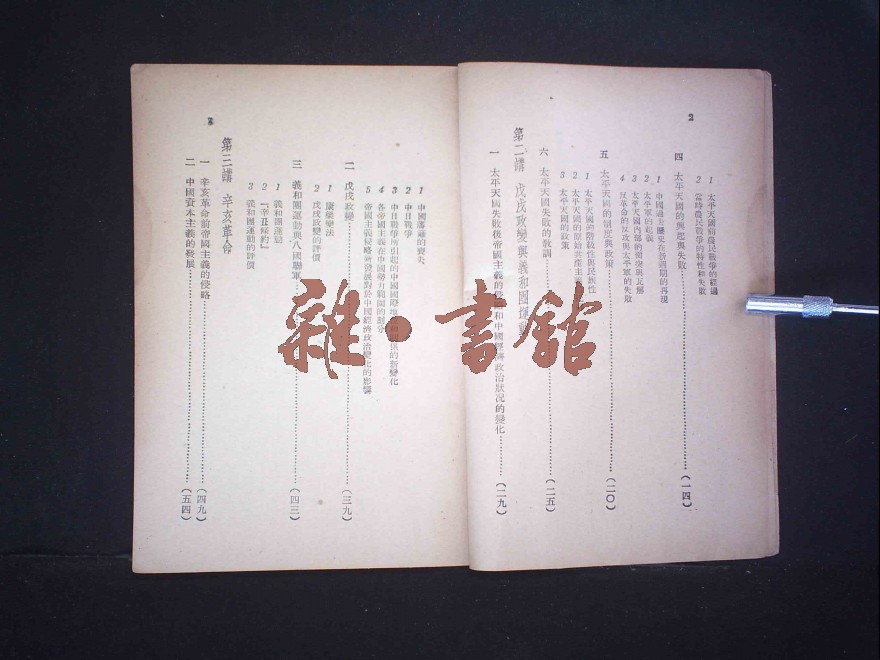 2
1 太平天國前農民戰爭的經過
2 當時農民戰爭的特性和失敗
四 太平天國的興起與失敗……(一四)
1 中國過去歷史在新週期的再現
2 太平軍的起義
3 太平天國內部的衝突與瓦解
4 反革命的反攻與太平軍的失敗
五 太平天國的制度與政策……(二〇)
1 太平天國的階級性與民族性
2 太平天國的原始共產主義
3 太平天國的政策
六 太平天國失敗的敎訓……(二五)
第二講 戊戌政變與義和團運動
一 太平天國失敗後帝國主義的侵略和中國經濟政治狀況的變化……(二九)
3
1 中國藩籬的喪失
2 中日戰爭
3 中日戰爭所引起的中國國際地位和關係的新變化
4 各帝國主義在中國勢力範圍的劃分
5 帝國主義侵略新發展對於中國經濟政治變化的影響
二 戊戌政變……(三九)
1 康梁變法
2 戊戌政變的評價
三 義和團運動與八國聯軍……(四三)
1 義和團運動
2 「辛丑條約」
3 義和團運動的評價
第三講 辛亥革命
一 辛亥革命前帝國主義的侵略……(四九)
二 中國資本主義的發展……(五四)
雜·書館